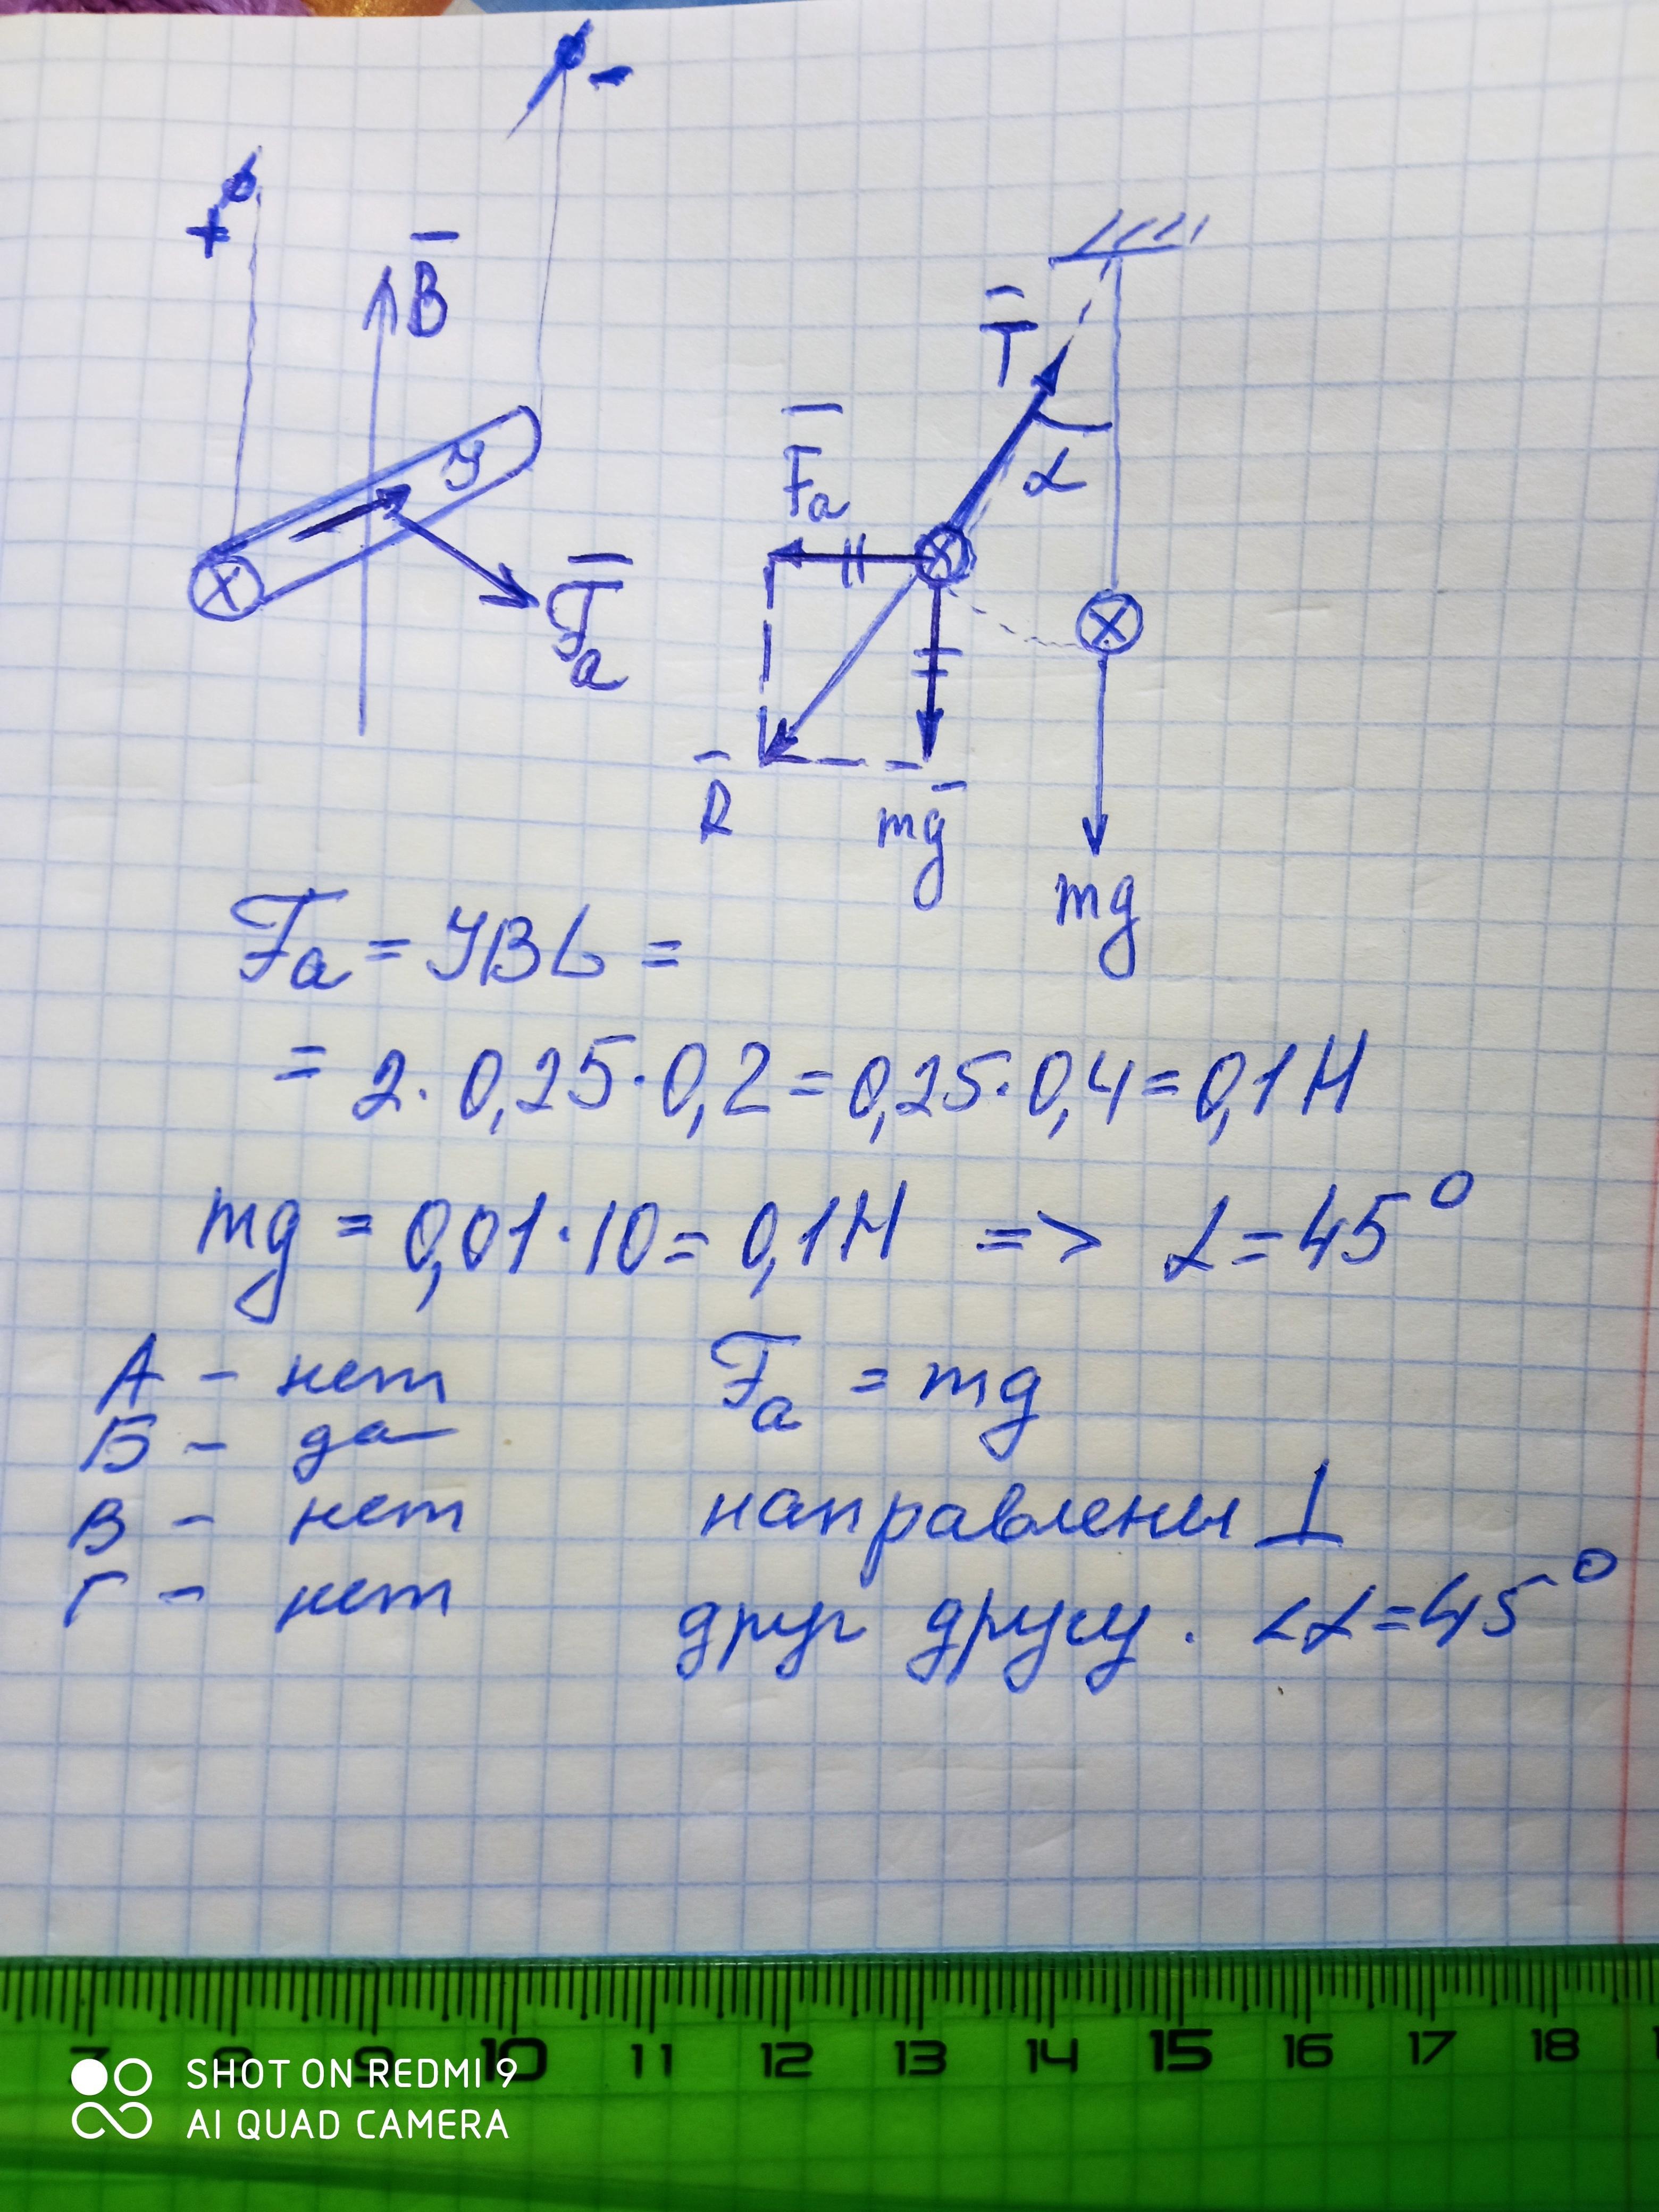 -
+
B
I
Fa
T
Fa
α
R
mg
mg
Fa = IBL =
= 2 · 0,25 · 0,2 = 0,25 · 0,4 = 0,1 Н
mg = 0,01 · 10 = 0,1 Н => α = 45°
А - нет
Fa = mg
Б - да
В - нет
направлены ⊥
Г - нет
друг другу. ∠α = 45°
7 8 9 10 11 12 13 14 15 16 17 18
SHOT ON REDMI 9
AI QUAD CAMERA